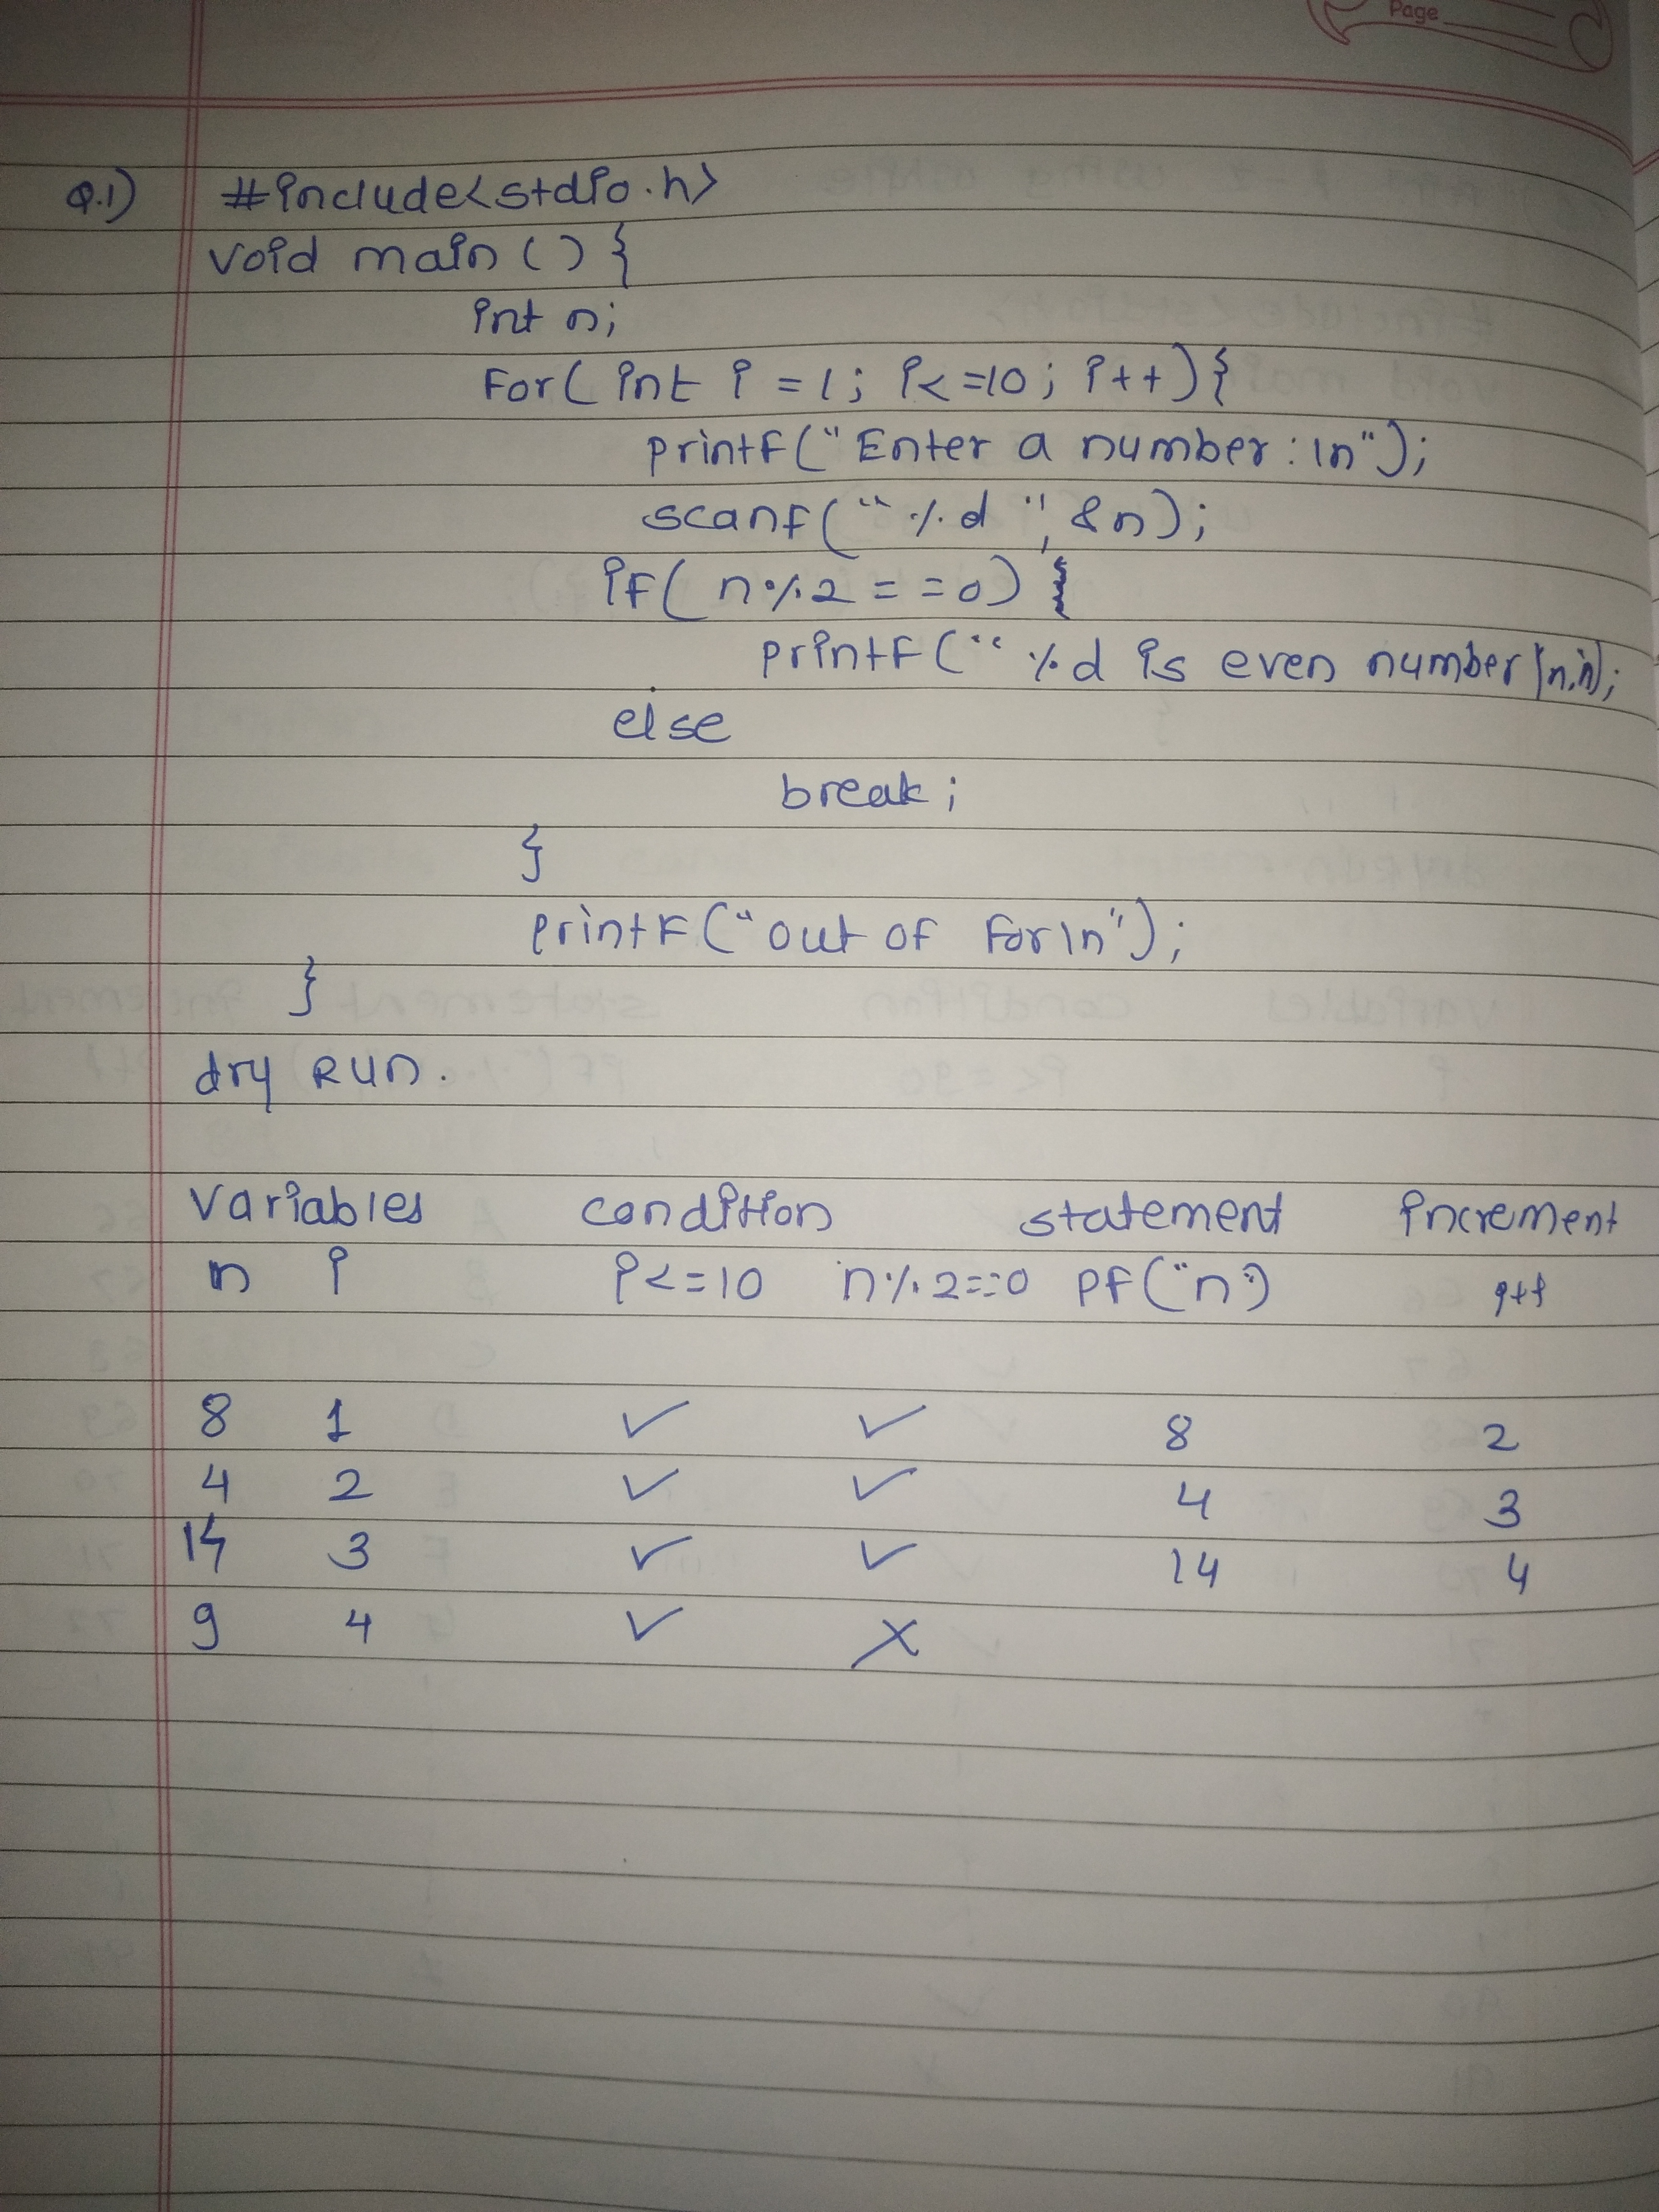 Page
Q.1) #include<stdio.h>
void main () {
int n;
For( int i = 1; i<=10; i++){
printf("Enter a number:\n");
scanf("%d", &n);
if( n%2 = =0)
printf("%d is even number\n",n);
else
break;
}
printf("out of for\n");
}
dry Run.
variables condition statement increment
n i i<=10 n%2==0 pf("n") i++
8 1 ✓ ✓ 8 2
4 2 ✓ ✓ 4 3
14 3 ✓ ✓ 14 4
9 4 ✓ ✗